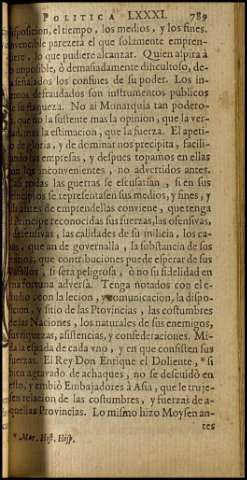 POLITICA LXXXI. 789
disposicion, el tiempo, los medios, y los fines.
invencible parezerà el que solamente empren-
o, lo que pudiere alcanzar. Quien aspira à
impossible, ò demasiadamente dificultoso, de-
señalados los confines de su poder. Los in-
defraudados son instrumentos publicos
flaqueza. No ai Monarquia tan podero-
que no la sustente mas la opinion, que la ver-
mas la estimacion, que la fuerza. El apeti-
gloria, y de dominar nos precipita, facili-
las empresas, y despues topamos en ellas
los inconvenientes, no advertidos antes.
todas las guerras se escusarian, si en sus
principios se representasen sus medios, y fines, y
antes de emprendellas conviene, que tenga
Principe reconocidas sus fuerzas, las ofensivas,
defensivas, las calidades de su milicia, los ca-
que an de governalla, la substancia de sus
que contribuciones puede esperar de sus
si serà peligrosa, ò no su fidelidad en
fortuna adversa. Tenga notados con el e-
con la lecion, y comunicacion, la dispo-
y sitio de las Provincias, las costumbres
de las Naciones, los naturales de sus enemigos,
riquezas, asistencias, y confederaciones. Mi-
la espada de cada vno, y en que consisten sus
fuerzas. El Rey Don Enrique el Doliente, * si
bien agravado de achaques, no se descuidò en
y embiò Embajadores à Asia, que le truje-
relacion de las costumbres, y fuerzas de a-
quellas Provincias. Lo mismo hizo Moysen an-
tes
* Mar. Hist. Hisp.